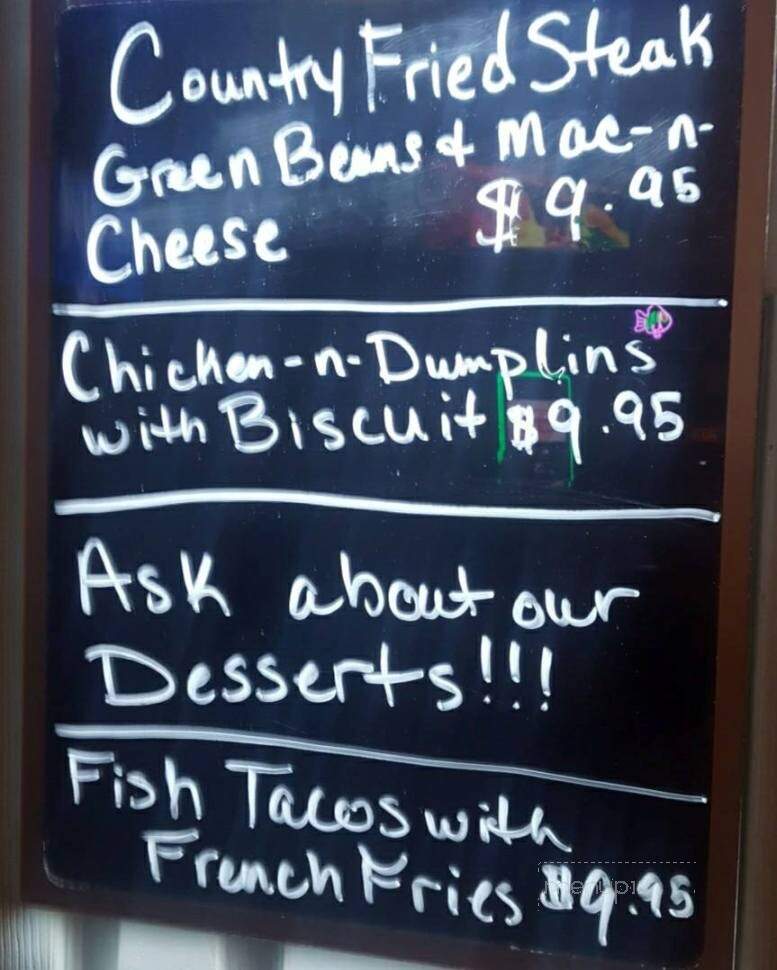 Country Fried Steak
Green Beans & Mac-n-
Cheese $9.95
Chicken-n-Dumplins
with Biscuit $9.95
Ask about our
Desserts!!!
Fish Tacos with
French Fries $9.95